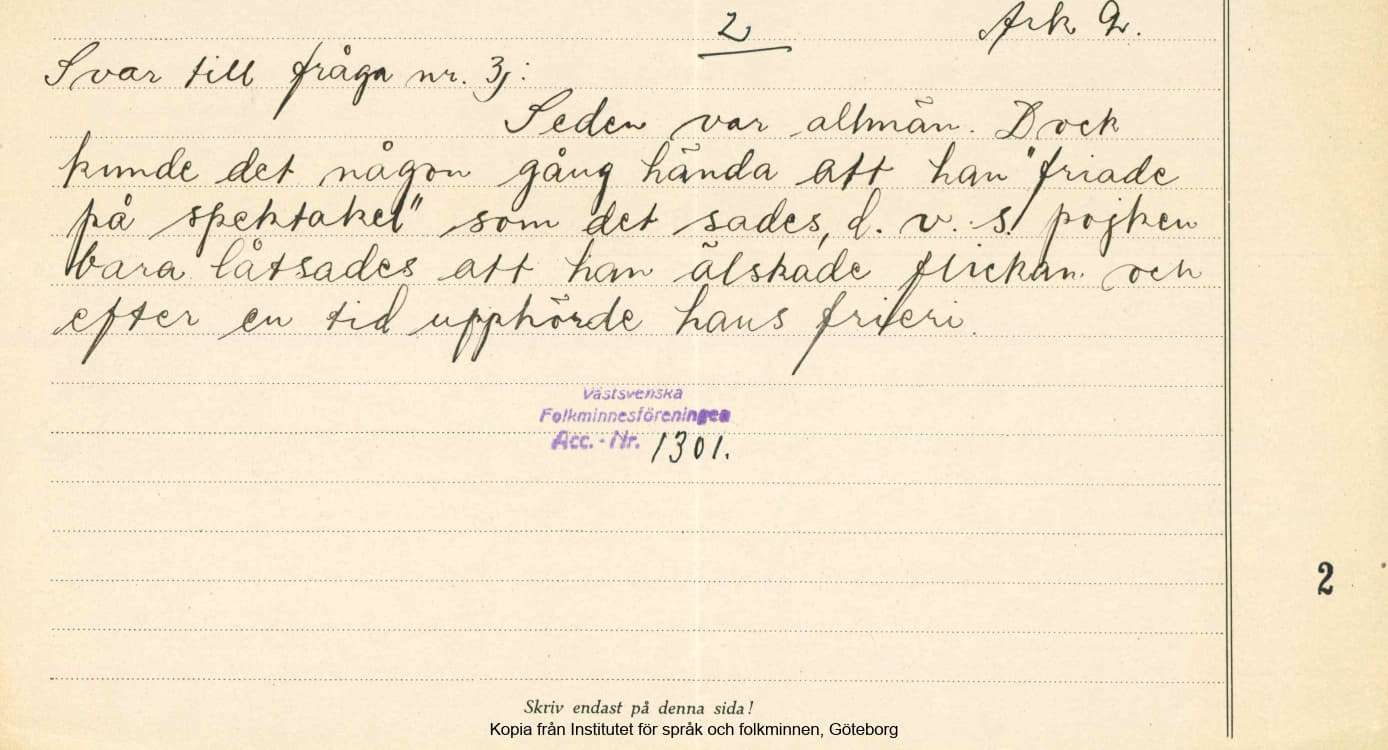 2
Ark 2.
Svar till fråga nr. 3j:
Seden var allmän. Dock
kunde det någon gång hända att han "friade
på spektakel" som det sades, d. v. s. pojken
bara låtsades att han älskade flickan och
efter en tid upphörde hans frieri.
Västsvenska
Folkminnesföreningen
Acc. - Nr. 1301.
2
Skriv endast på denna sida!
Kopia från Institutet för språk och folkminnen, Göteborg